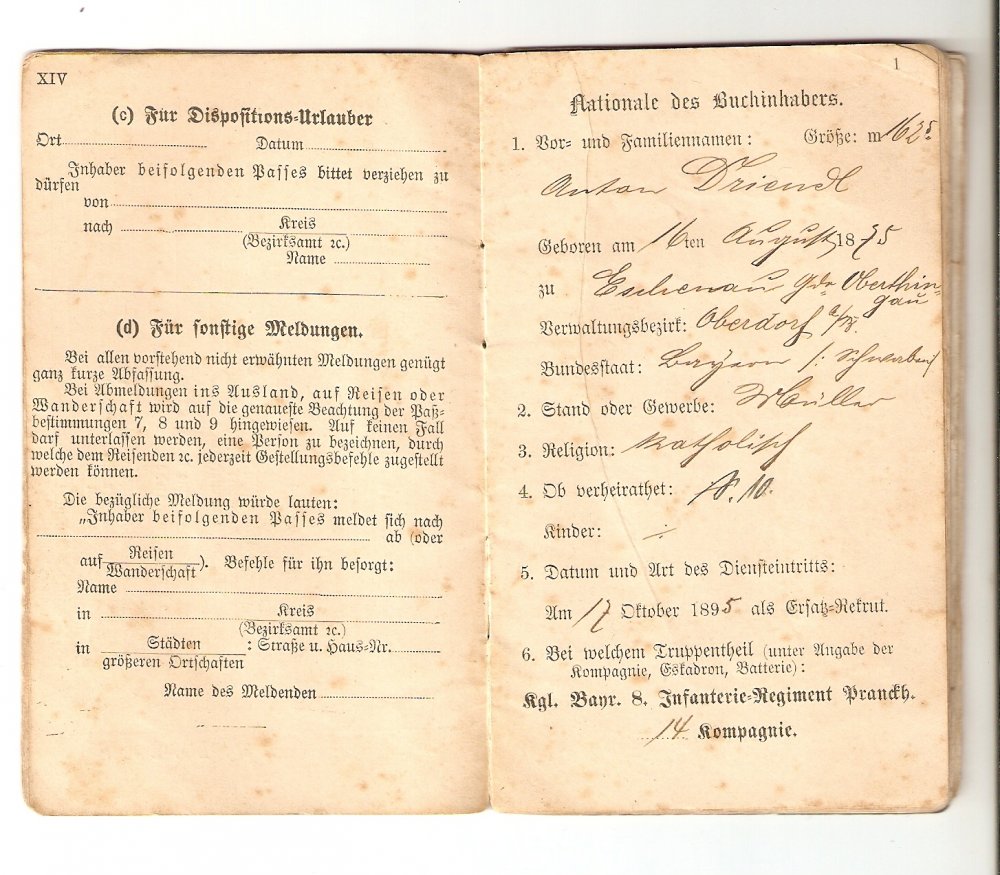 XIV
(c) Für Dispositions-Urlauber
Ort Datum
Inhaber beifolgenden Passes bittet verziehen zu
dürfen
von
nach Kreis
(Bezirksamt ꝛc.)
Name
(d) Für sonstige Meldungen.
Bei allen vorstehend nicht erwähnten Meldungen genügt
ganz kurze Abfassung.
Bei Abmeldungen ins Ausland, auf Reisen oder
Wanderschaft wird auf die genaueste Beachtung der Paß-
bestimmungen 7, 8 und 9 hingewiesen. Auf keinen Fall
darf unterlassen werden, eine Person zu bezeichnen, durch
welche dem Reisenden ꝛc. jederzeit Gestellungsbefehle zugestellt
werden können.
Die bezügliche Meldung würde lauten:
„Inhaber beifolgenden Passes meldet sich nach
ab (oder
auf Reisen
Wanderschaft). Befehle für ihn besorgt:
Name
in Kreis
(Bezirksamt ꝛc.)
in Städten : Straße u. Haus-Nr.
größeren Ortschaften
Name des Meldenden
1
Nationale des Buchinhabers.
1. Vor- und Familiennamen: Größe: m 1625.
Anton Driendl
Geboren am 16ten August 1875
zu Eschenau Gde Oberthin-
gau
Verwaltungsbezirk: Oberdorf a/
Bundesstaat: Bayern /: Schwaben
2. Stand oder Gewerbe: Müller
3. Religion: katholisch
4. Ob verheirathet: S. 10.
Kinder: ÷
5. Datum und Art des Diensteintritts:
Am 17 Oktober 1895 als Ersatz-Rekrut.
6. Bei welchem Truppentheil (unter Angabe der
Kompagnie, Eskadron, Batterie):
Kgl. Bayr. 8. Infanterie-Regiment Pranckh.
14 Kompagnie.